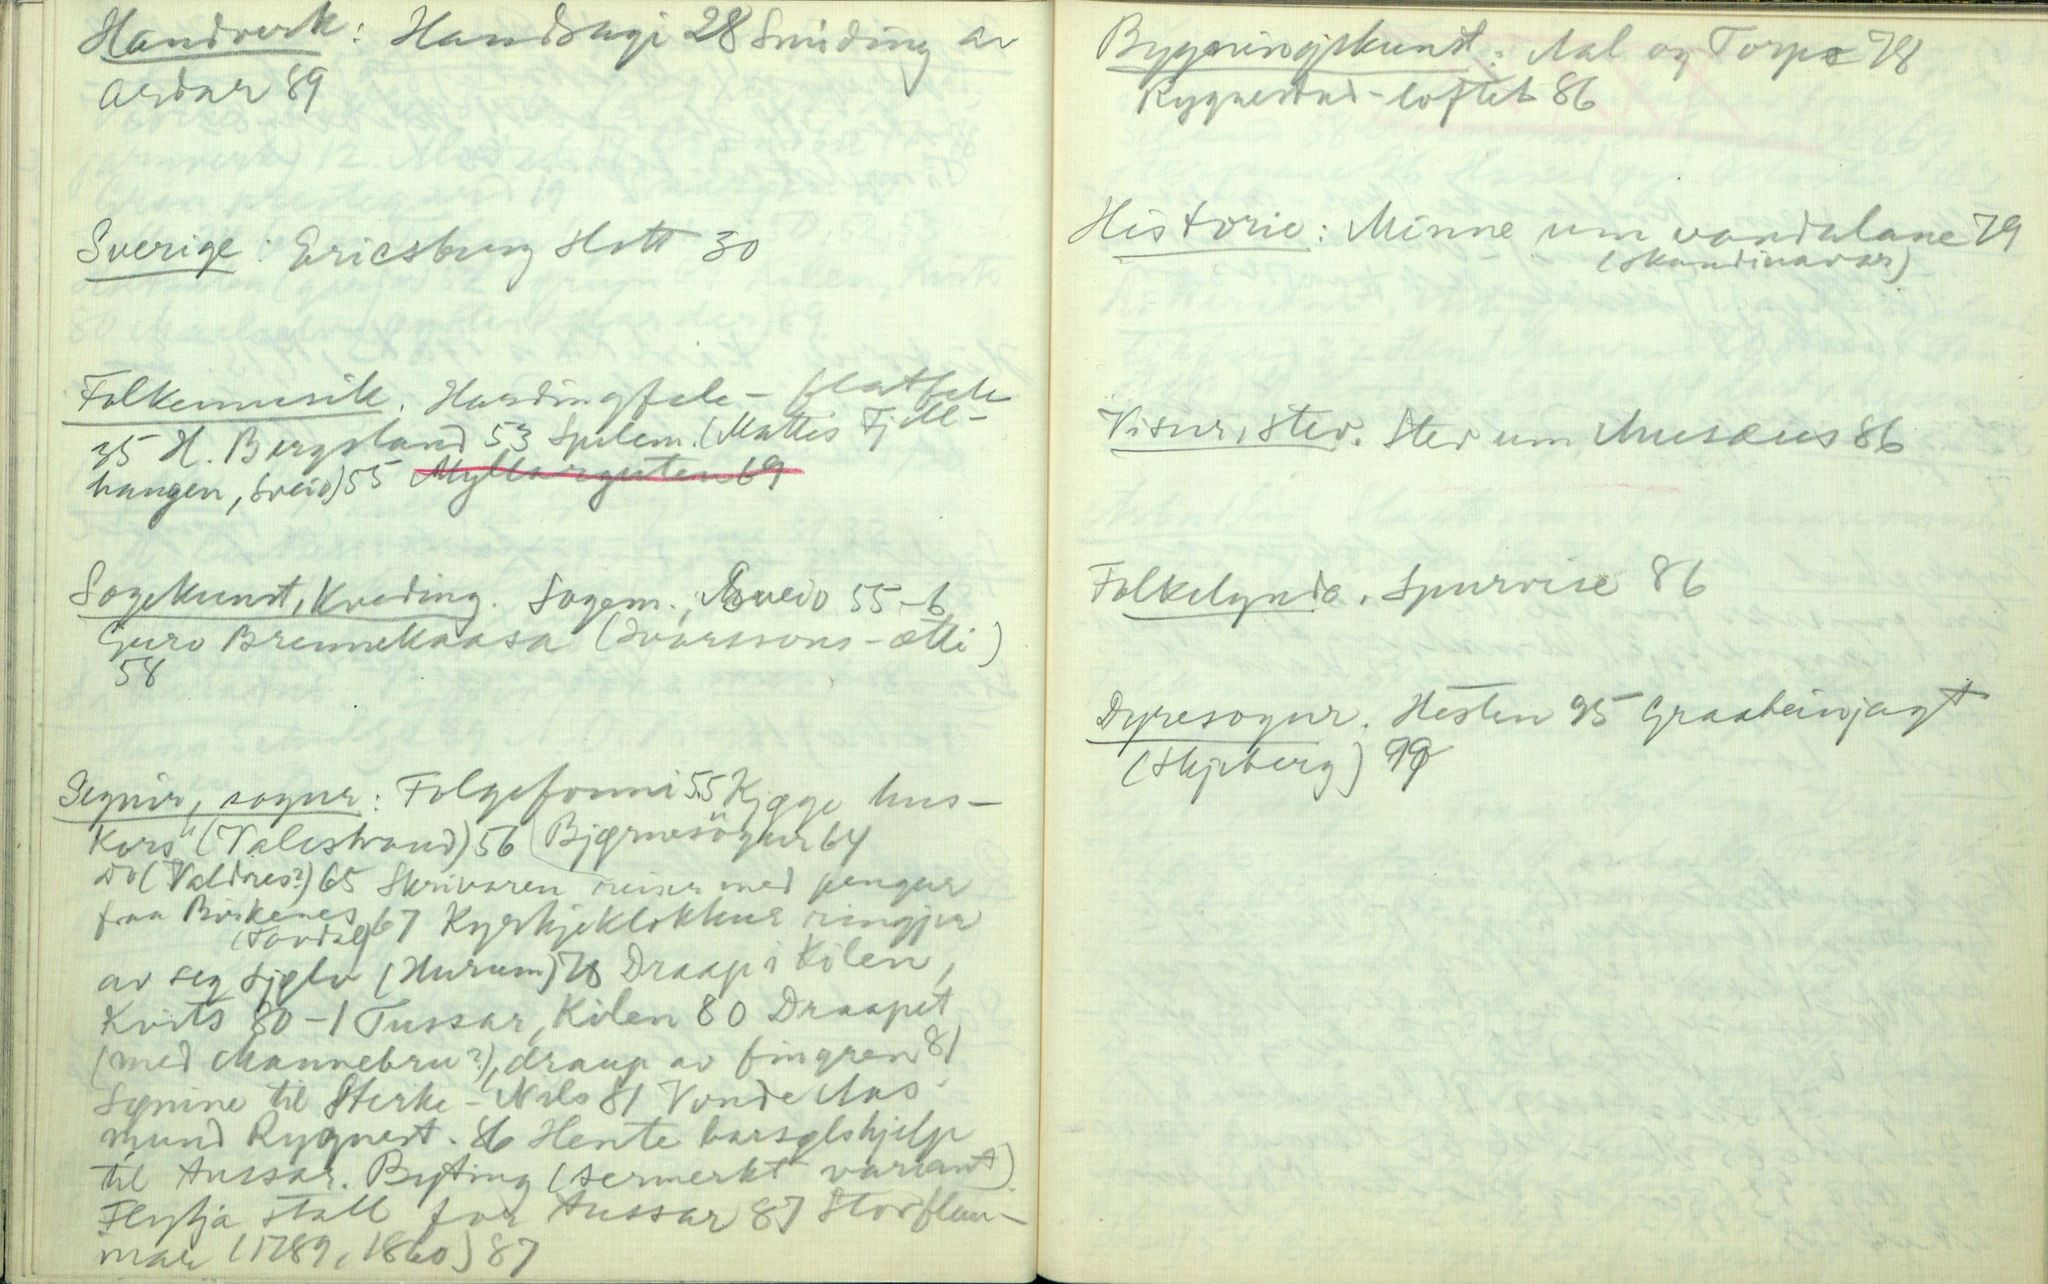 Handverk: Handsagi 28 Smiding av
ardar 89
Sverige: Ericsberg slott 30
Folkemusik. Hardingfela - flatfela
35 H. Bergsland 53 Spelem. (Mattis Fjell-
haugen, Sveio) 55 Myllarguten 69
Sogekunst, Kveding. Sogem., Sveio 55-6
Guro Brennekaasa (Ivarssons-ætti)
58
Segnir, sogur: Folgefonni 55 Kjøge hus-
kors" (Valestrand) 56 Bjørnesogur 64
Do (Valdres?) 65 Skrivaren reiser med pengar
fraa Birkenes 67 Kyrkjeklokkur ringjer
(Tovdal)
av seg sjølv (Hurum) 78 Draap i Kilen,
Kvits 80-1 Tussar, Kilen 80 Draapet
(med Mannebru?), draup av fingren 81
Synine til Sterke-Nils 81 Vonde Aas-
mund Rygnest. 86 Hente barselshjelp
til tussar. Byting (sermerkt variant)
Flytja stall for tussar 87 Storflau-
mar (1789, 1860) 87
Bygningskunst: Aal og Torpe 78
Rygnestad-loftet 86
Historie: Minne um vandalane 79
(skandinavar)
Visur, stev. Stev um Musæus 86
Folkelynde. Spurvise 86
Dyresogur. Hesten 95 Graabeinjagt
(Skjeberg) 99